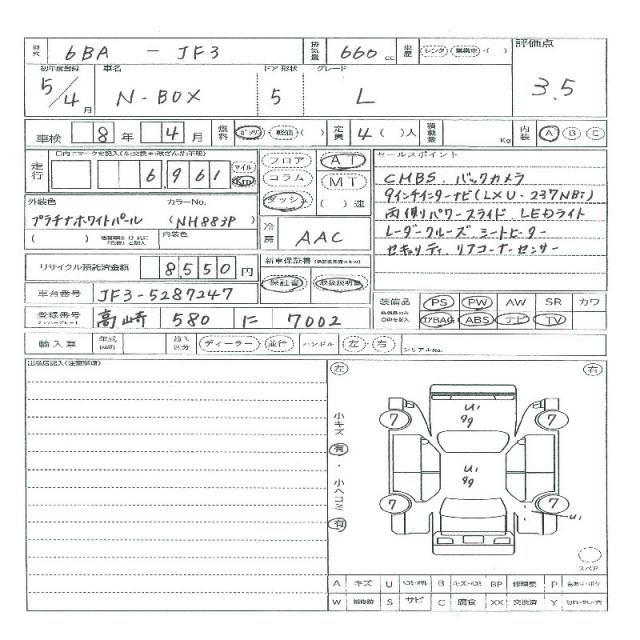 型式 6BA - JF3 排気量 660 cc 車歴 (レンタ)・( )・( ) 評価点
初年度登録 車名 ドア 形状 グレード
5/4月 N-BOX 5 L 3.5
車検 8 年 4 月 燃料 (ガソリン)・(軽油)( ) 定員 4( )人 積載量 Kg 内装 A B C
走行 6,961 マイル Km
フロア コラム ダッシュ
AT MT ( )速
セールスポイント
CMBS. バックカメラ
9インチインターナビ(LXU-237NBi)
両側パワースライド LEDライト
レーダークルーズ シートヒーター
セキュリティ. リアコーナーセンサー
外装色 カラーNo.
プラチナホワイトパール (NH883P)
( ) 内装色
冷房 AAC
リサイクル預託済金額 8,550円
新車保証書
保証書 取扱説明書
車台番号 JF3-5287247
登録番号 高崎 580 に 7002
装備品 PS PW AW SR カワ
エアBAG ABS ナビ TV
輸入車 年式 輸入区分 (ディーラー)・(並行) ハンドル 左・右 シリアルNo.
出品店記入(注意事項)
左 右
小キズ 有 ・ 小ヘコミ 有
U1
99
7 7
U1
99
7 7
U1
スペア
A キズ U B キズ・ヘコミ BP 修理要 P
W S サビ C 腐食 XX 交換済 Y